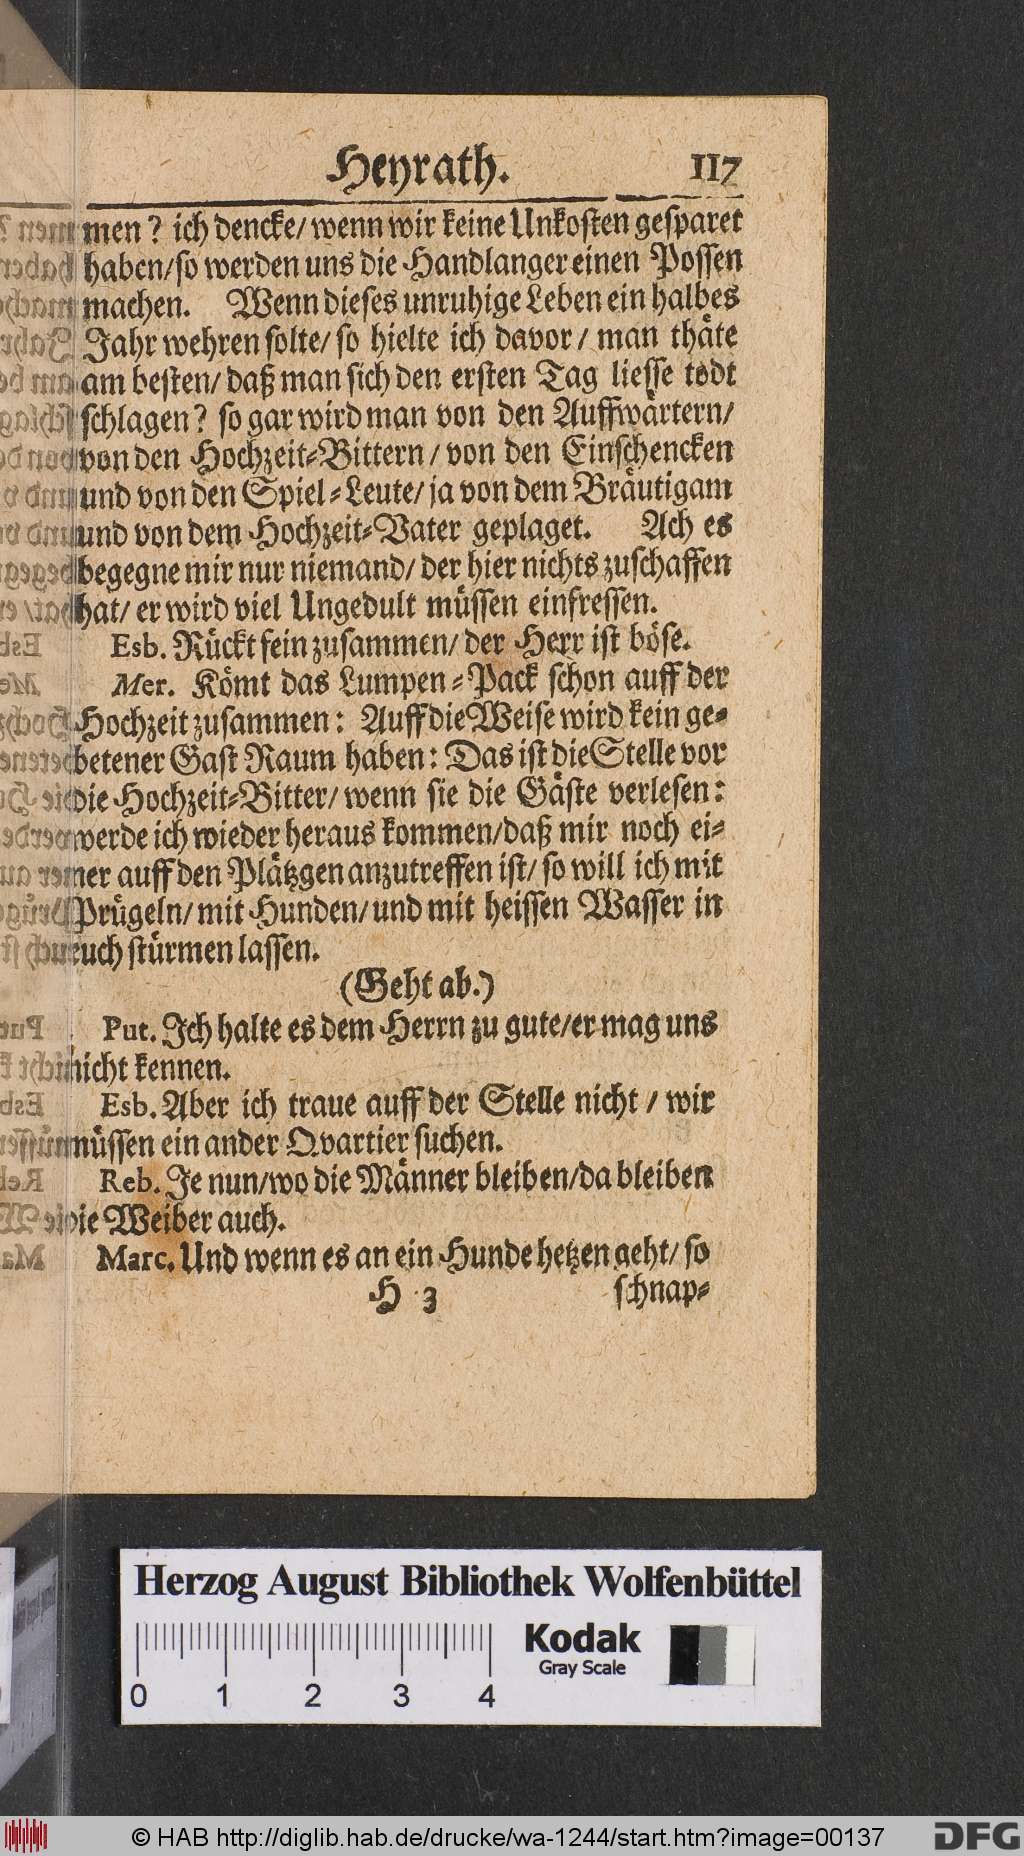 Heyrath. 117
men? ich dencke/ wenn wir keine Unkosten gesparet
haben/ so werden uns die Handlanger einen Possen
machen. Wenn dieses unruhige Leben ein halbes
Jahr wehren solte/ so hielte ich davor/ man thäte
am besten/ daß man sich den ersten Tag liesse todt
schlagen? so gar wird man von den Auffwärtern/
von den Hochzeit-Bittern/ von den Einschencken
und von den Spiel-Leute/ ja von dem Bräutigam
und von dem Hochzeit-Vater geplaget. Ach es
begegne mir nur niemand/ der hier nichts zuschaffen
hat/ er wird viel Ungedult müssen einfressen.
Esb. Rückt fein zusammen/ der Herr ist böse.
Mer. Kömt das Lumpen-Pack schon auff der
Hochzeit zusammen: Auff die Weise wird kein ge-
betener Gast Raum haben: Das ist die Stelle vor
die Hochzeit-Bitter/ wenn sie die Gäste verlesen:
werde ich wieder heraus kommen/ daß mir noch ei-
ner auff den Plätzgen anzutreffen ist/ so will ich mit
Prügeln/ mit Hunden/ und mit heissen Wasser in
euch stürmen lassen.
(Geht ab.)
Put. Ich halte es dem Herrn zu gute/ er mag uns
nicht kennen.
Esb. Aber ich traue auff der Stelle nicht/ wir
müssen ein ander Qvartier suchen.
Reb. Je nun/ wo die Männer bleiben/ da bleiben
die Weiber auch.
Marc. Und wenn es an ein Hunde hetzen geht/ so
H 3 schnap-
Herzog August Bibliothek Wolfenbüttel
Kodak
Gray Scale
0 1 2 3 4
© HAB http://diglib.hab.de/drucke/wa-1244/start.htm?image=00137
DFG